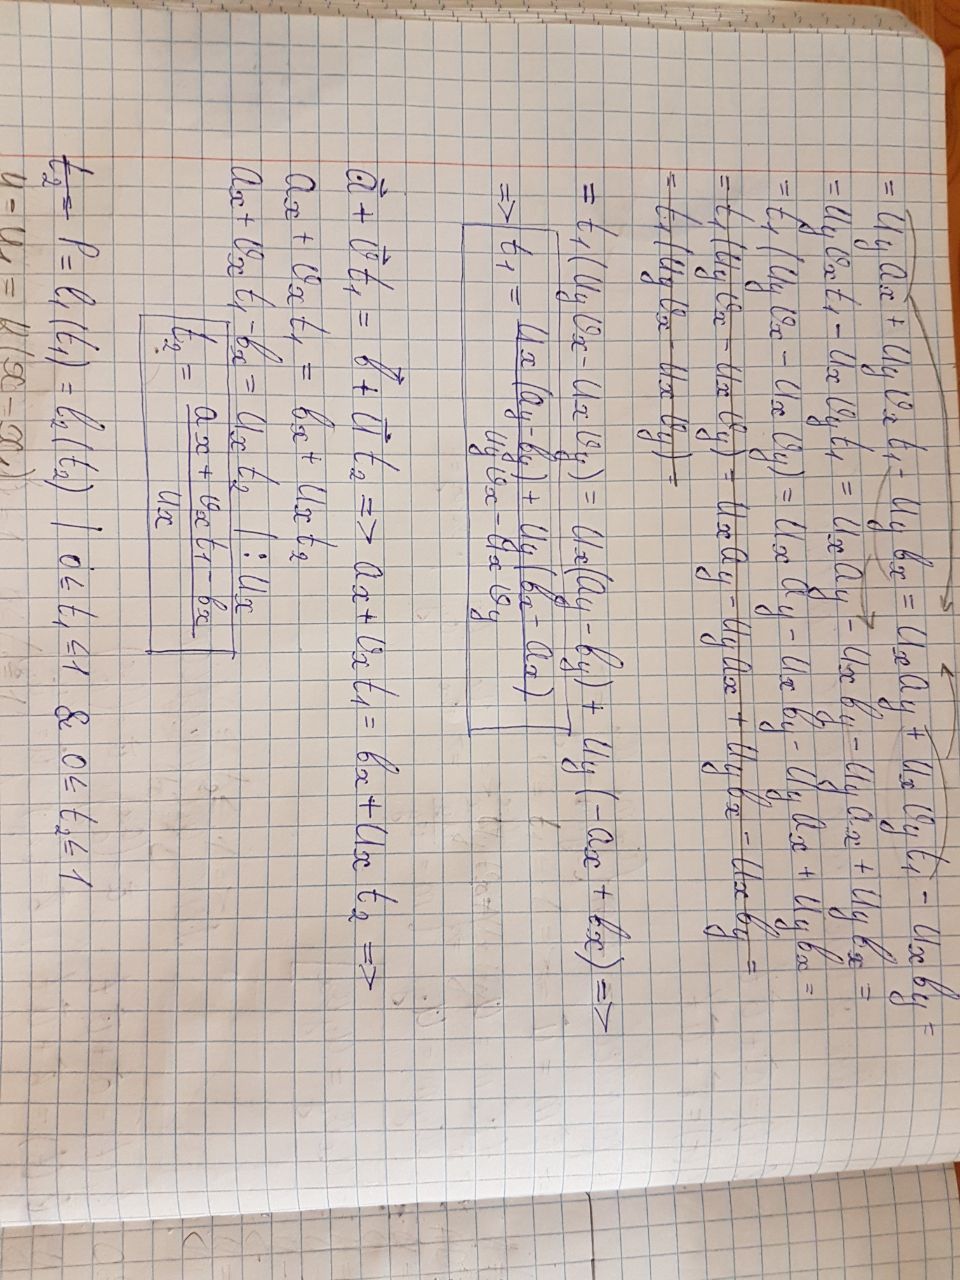 = Uyax + Uyvxt₁ - Uybx = Uxay + Uxvyt₁ - Uxby =
= Uyvxt₁ - Uxvyt₁ = Uxay - Uxby - Uyax + Uybx =
= t₁(Uyvx - Uxvy) = Uxay - Uxby - Uyax + Uybx =
= t₁(Uyvx - Uxvy) = Uxay - Uyax + Uybx - Uxby =
= t₁(Uyvx - Uxvy) =
= t₁(Uyvx - Uxvy) = Ux(ay - by) + Uy(-ax + bx) =>
=> t₁ = Ux(ay-by) + Uy(bx - ax) / Uyvx - Uxvy
a⃗ + v⃗t₁ = b⃗ + u⃗t₂ => ax + vxt₁ = bx + Uxt₂ =>
ax + vxt₁ = bx + Uxt₂
ax + vxt₁ - bx = Uxt₂ | : Ux
t₂ = ax + vxt₁ - bx / Ux
t₂ = P = l₁(t₁) = l₂(t₂) | 0 ≤ t₁ ≤ 1 & 0 ≤ t₂ ≤ 1
y - y₁ = k(x - x₁)